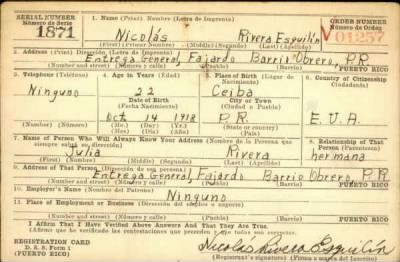 SERIAL NUMBER
Número de Serie
1871
1. Name (Print) Nombre (Letra de Imprenta)
ORDER NUMBER
Número de Orden
Nicolás Rivera Esquilín
V01257
(First) (Primer Nombre) (Middle) (Segundo) (Last) (Apellido)
2. Address (Print) Dirección (Letra de Imprenta)
Entrega General, Fajardo Barrio Obrero, P.R.
(Number and street) (Número y calle) (Town) (Pueblo) PUERTO RICO
3. Telephone (Teléfono)
4. Age in Years (Edad)
5. Place of Birth (Lugar de Nacimiento)
6. Country of Citizenship
Ciudadanía
Ninguno 22 Ceiba
Date of Birth
(Fecha Nacimiento)
City or Town
(Ciudad o Pueblo)
Oct 14 1918 P.R. E.U.A.
(Mo.) (Day) (Yr.)
(Mes) (Día) (Año)
State or country)
(País)
7. Name of Person Who Will Always Know Your Address (Nombre de la Persona que siempre sabrá su dirección)
8. Relationship of That Person
(Parentesco)
Julia Rivera hermana
(First) (Nombre) (Middle) (Segundo) (Last) (Apellido)
9. Address of That Person (Dirección de esa persona)
Entrega General, Fajardo Barrio Obrero, P.R.
(Number and street) (Número y calle) (Town) (Pueblo) PUERTO RICO
10. Employer's Name (Nombre del Patrono)
Ninguno
11. Place of Employment or Business (Dirección del empleo o negocio)
(Number and street) (Número y calle) (Town) (Pueblo) PUERTO RICO
I Affirm That I Have Verified Above Answers And That They Are True.
(Afirmo que he verificado las contestaciones que preceden y que todas son ciertas).
REGISTRATION CARD
D. S. S. Form 1
(PUERTO RICO)
Nicolás Rivera Esquilín
(Registrant's signature) (Firma o marca del Inscrito)